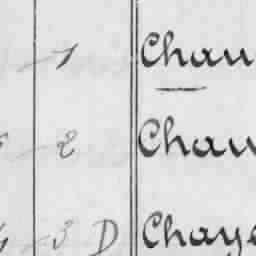 1 Chau
2 Chau
3 D Chaye